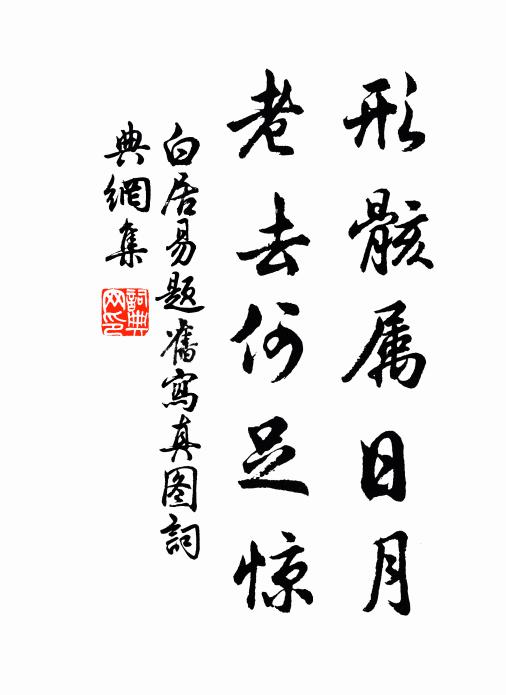 形骸属日月
老去何足惊
白居易題舊寫真图詞
典網集
詞典
网印